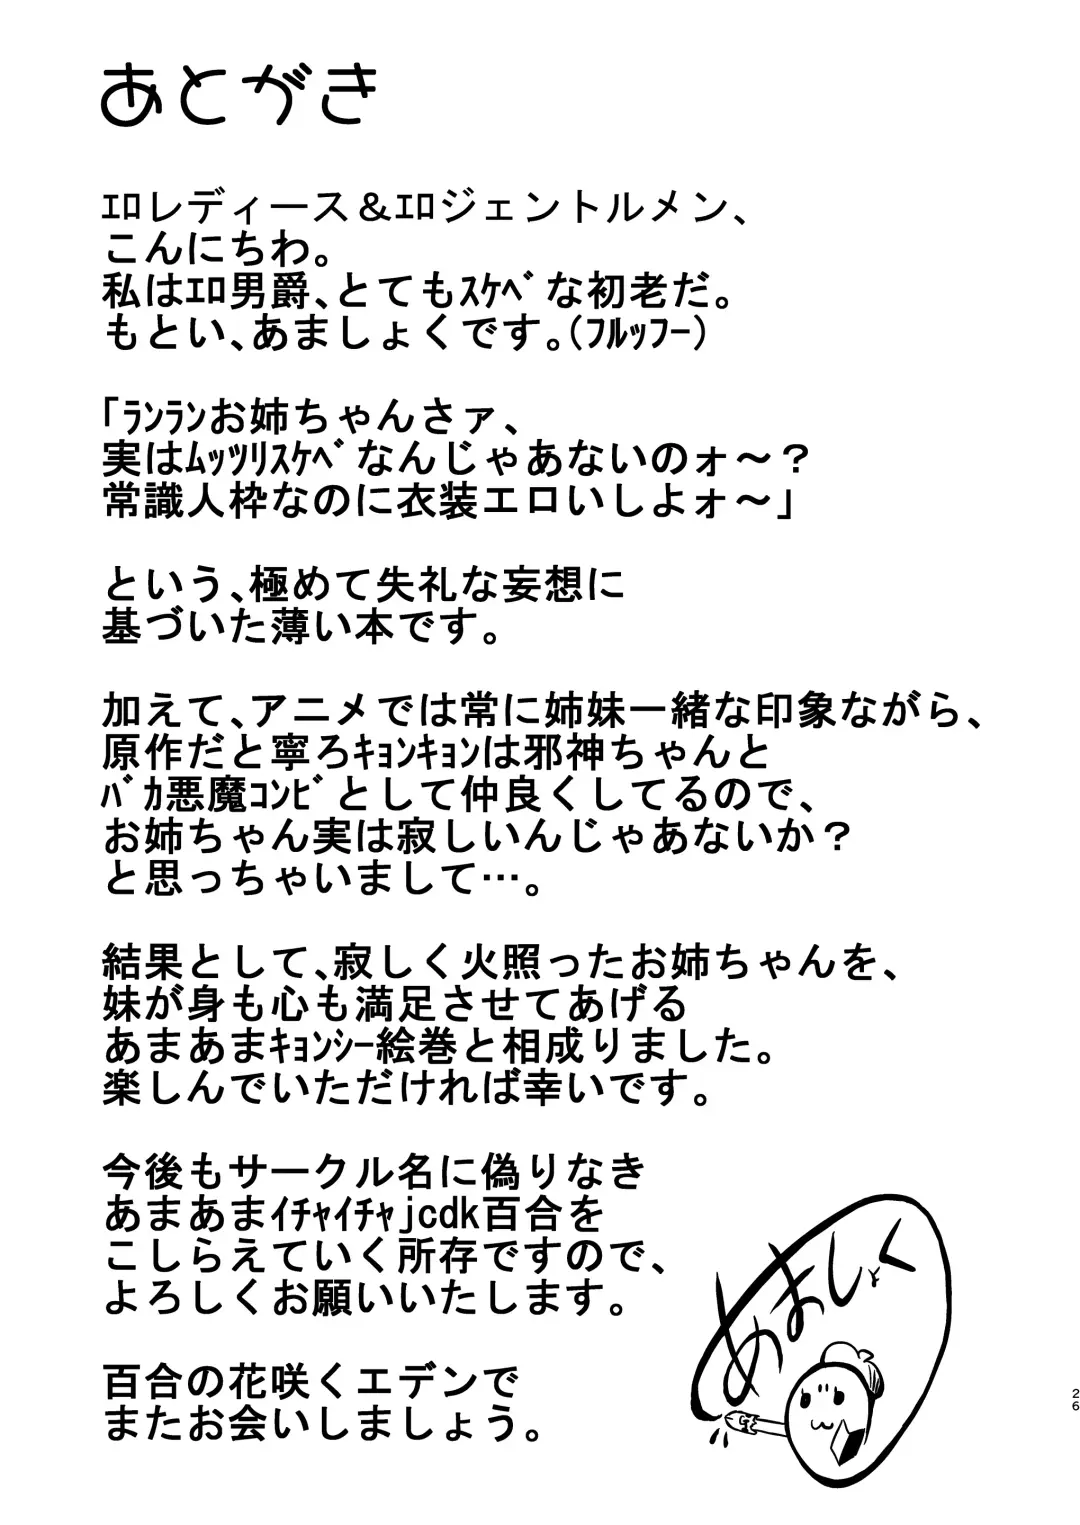 あとがき
ｴﾛレディース＆ｴﾛジェントルメン、
こんにちわ。
私はｴﾛ男爵、とてもｽｹﾍﾞな初老だ。
もとい、あましょくです。(ﾌﾙｯﾌｰ)
「ﾗﾝﾗﾝお姉ちゃんさァ、
実はﾑｯﾂﾘｽｹﾍﾞなんじゃあないのォ～？
常識人枠なのに衣装エロいしよォ～」
という、極めて失礼な妄想に
基づいた薄い本です。
加えて、アニメでは常に姉妹一緒な印象ながら、
原作だと寧ろｷｮﾝｷｮﾝは邪神ちゃんと
ﾊﾞｶ悪魔ｺﾝﾋﾞとして仲良くしてるので、
お姉ちゃん実は寂しいんじゃあないか？
と思っちゃいまして…。
結果として、寂しく火照ったお姉ちゃんを、
妹が身も心も満足させてあげる
あまあまｷｮﾝｼｰ絵巻と相成りました。
楽しんでいただければ幸いです。
今後もサークル名に偽りなき
あまあまｲﾁｬｲﾁｬjcdk百合を
こしらえていく所存ですので、
よろしくお願いいたします。
百合の花咲くエデンで
またお会いしましょう。
あましょく
26